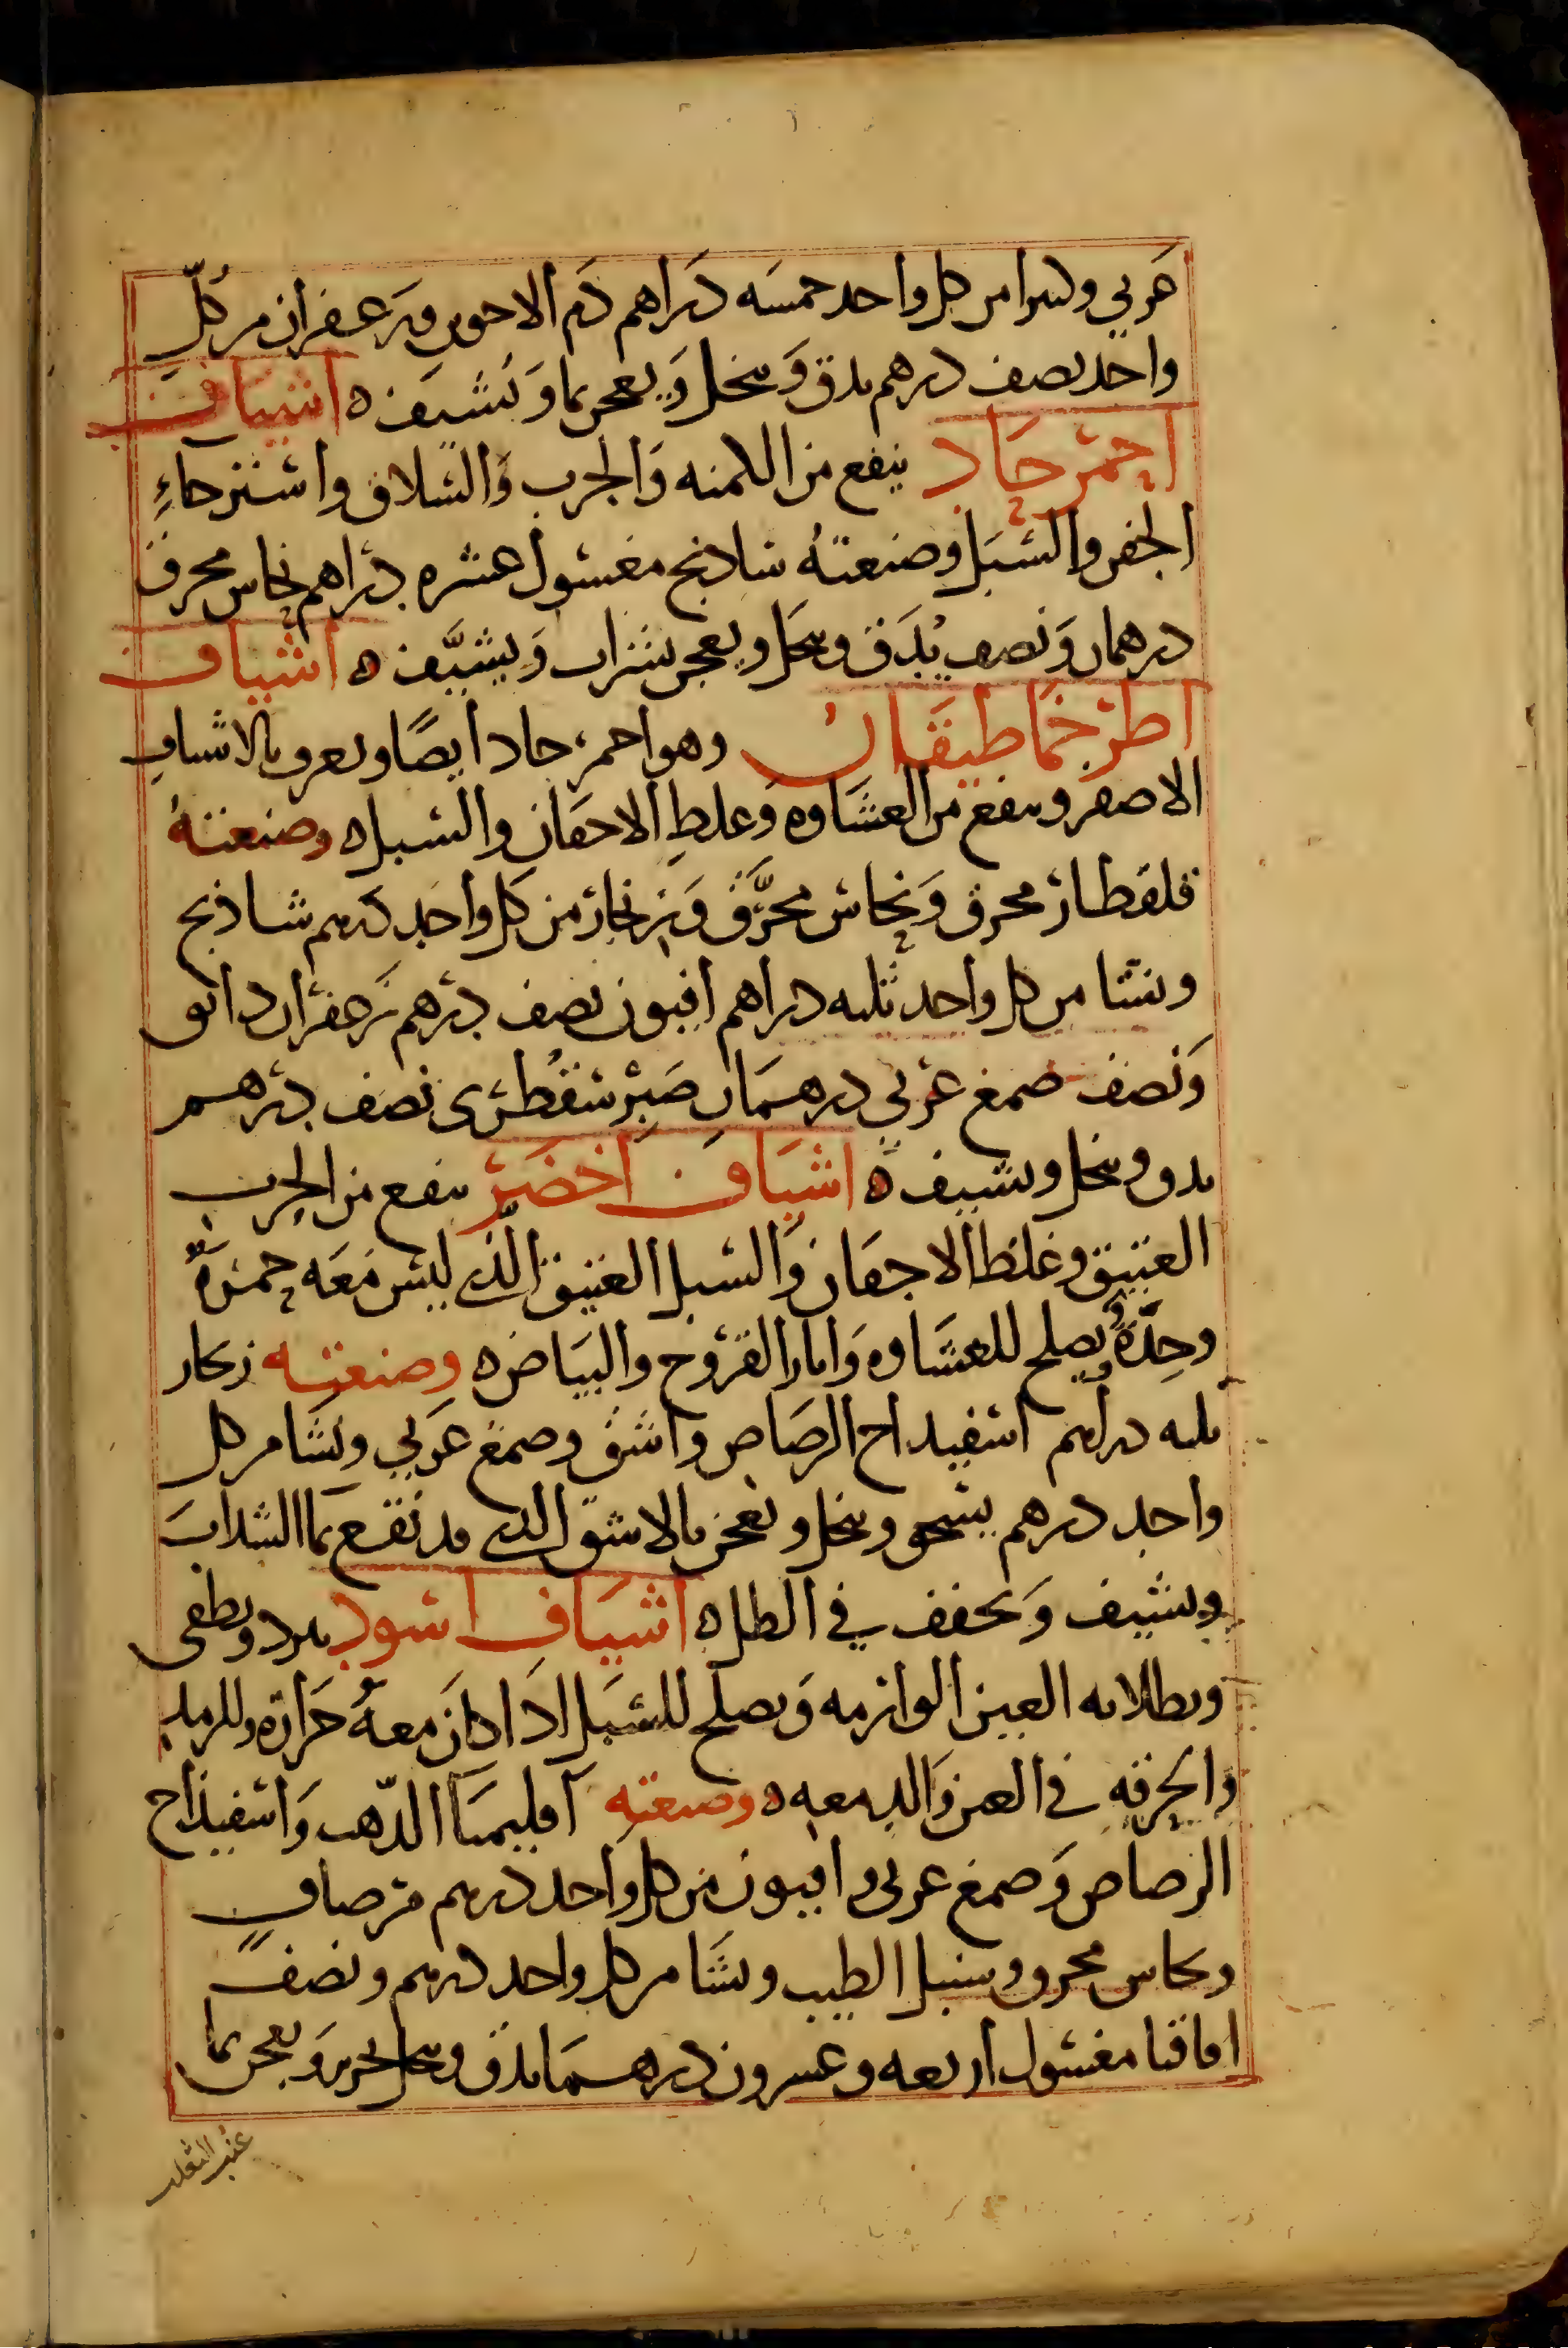 عربي وكثيرا من كل واحد خمسه دراهم دم الاخوين وزعفران من كلّ
واحد نصف درهم يدق وينخل ويعجن بما ويشيف ه اشياف
احمر حاد ينفع من الكمنه والجرب والسلاق واسترخاء
الجفن والسبل وصنعته شاذنج مغسول عشره دراهم نحاس محرق
درهمان ونصف يُدَق وينخل ويعجن بشراب ويشيَّف ه اشياف
اطرخماطيقان وهو احمر حاد ايضًا ويعرف بالاشياف
الاصفر وينفع من العشاوه وغلظ الاجفان والسبل ه وصنعته
قلقطار محرق ونحاس محرَّق وزنجار من كل واحد درهم شاذنج
ونشا من كل واحد ثلثه دراهم افيون نصف درهم زعفران دانق
ونصف صمغ عربي درهمان صبر سقطرى نصف درهم
يدق وينخل ويشيف ه اشياف اخضر ينفع من الجرب
العتيق وغلظ الاجفان والسبل العتيق الذي ليس معه حمرةٌ
وحِدّةٌ ويصلح للعشاوه واثار القروح والبياض ه وصنعته زنجار
ثلثه دراهم اسفيداج الرصاص واشق وصمغ عربي ونشا من كل
واحد درهم يسحق وينخل ويعجن بالاشق الذي قد نقع بما السداب
ويشيف ويجفف في الظل ه اشياف اسود يبرد ويطفى
ويطلا به العين الوارمه ويصلح للسبل اذا كان معهُ حرارة وللرمد
والحرقه في العين والدمعه ه وصنعته اقليميا الذّهب واسفيذاج
الرصاص وصمغ عربى وافيون من كل واحد درهم مر صافٍ
ونحاس محرق وسنبل الطيب ونشا من كل واحد درهم ونصف
اقاقيا مغسول اربعه وعشرون درهما يدق وينخل بحرير ويعجن بما
عنب الثعلب